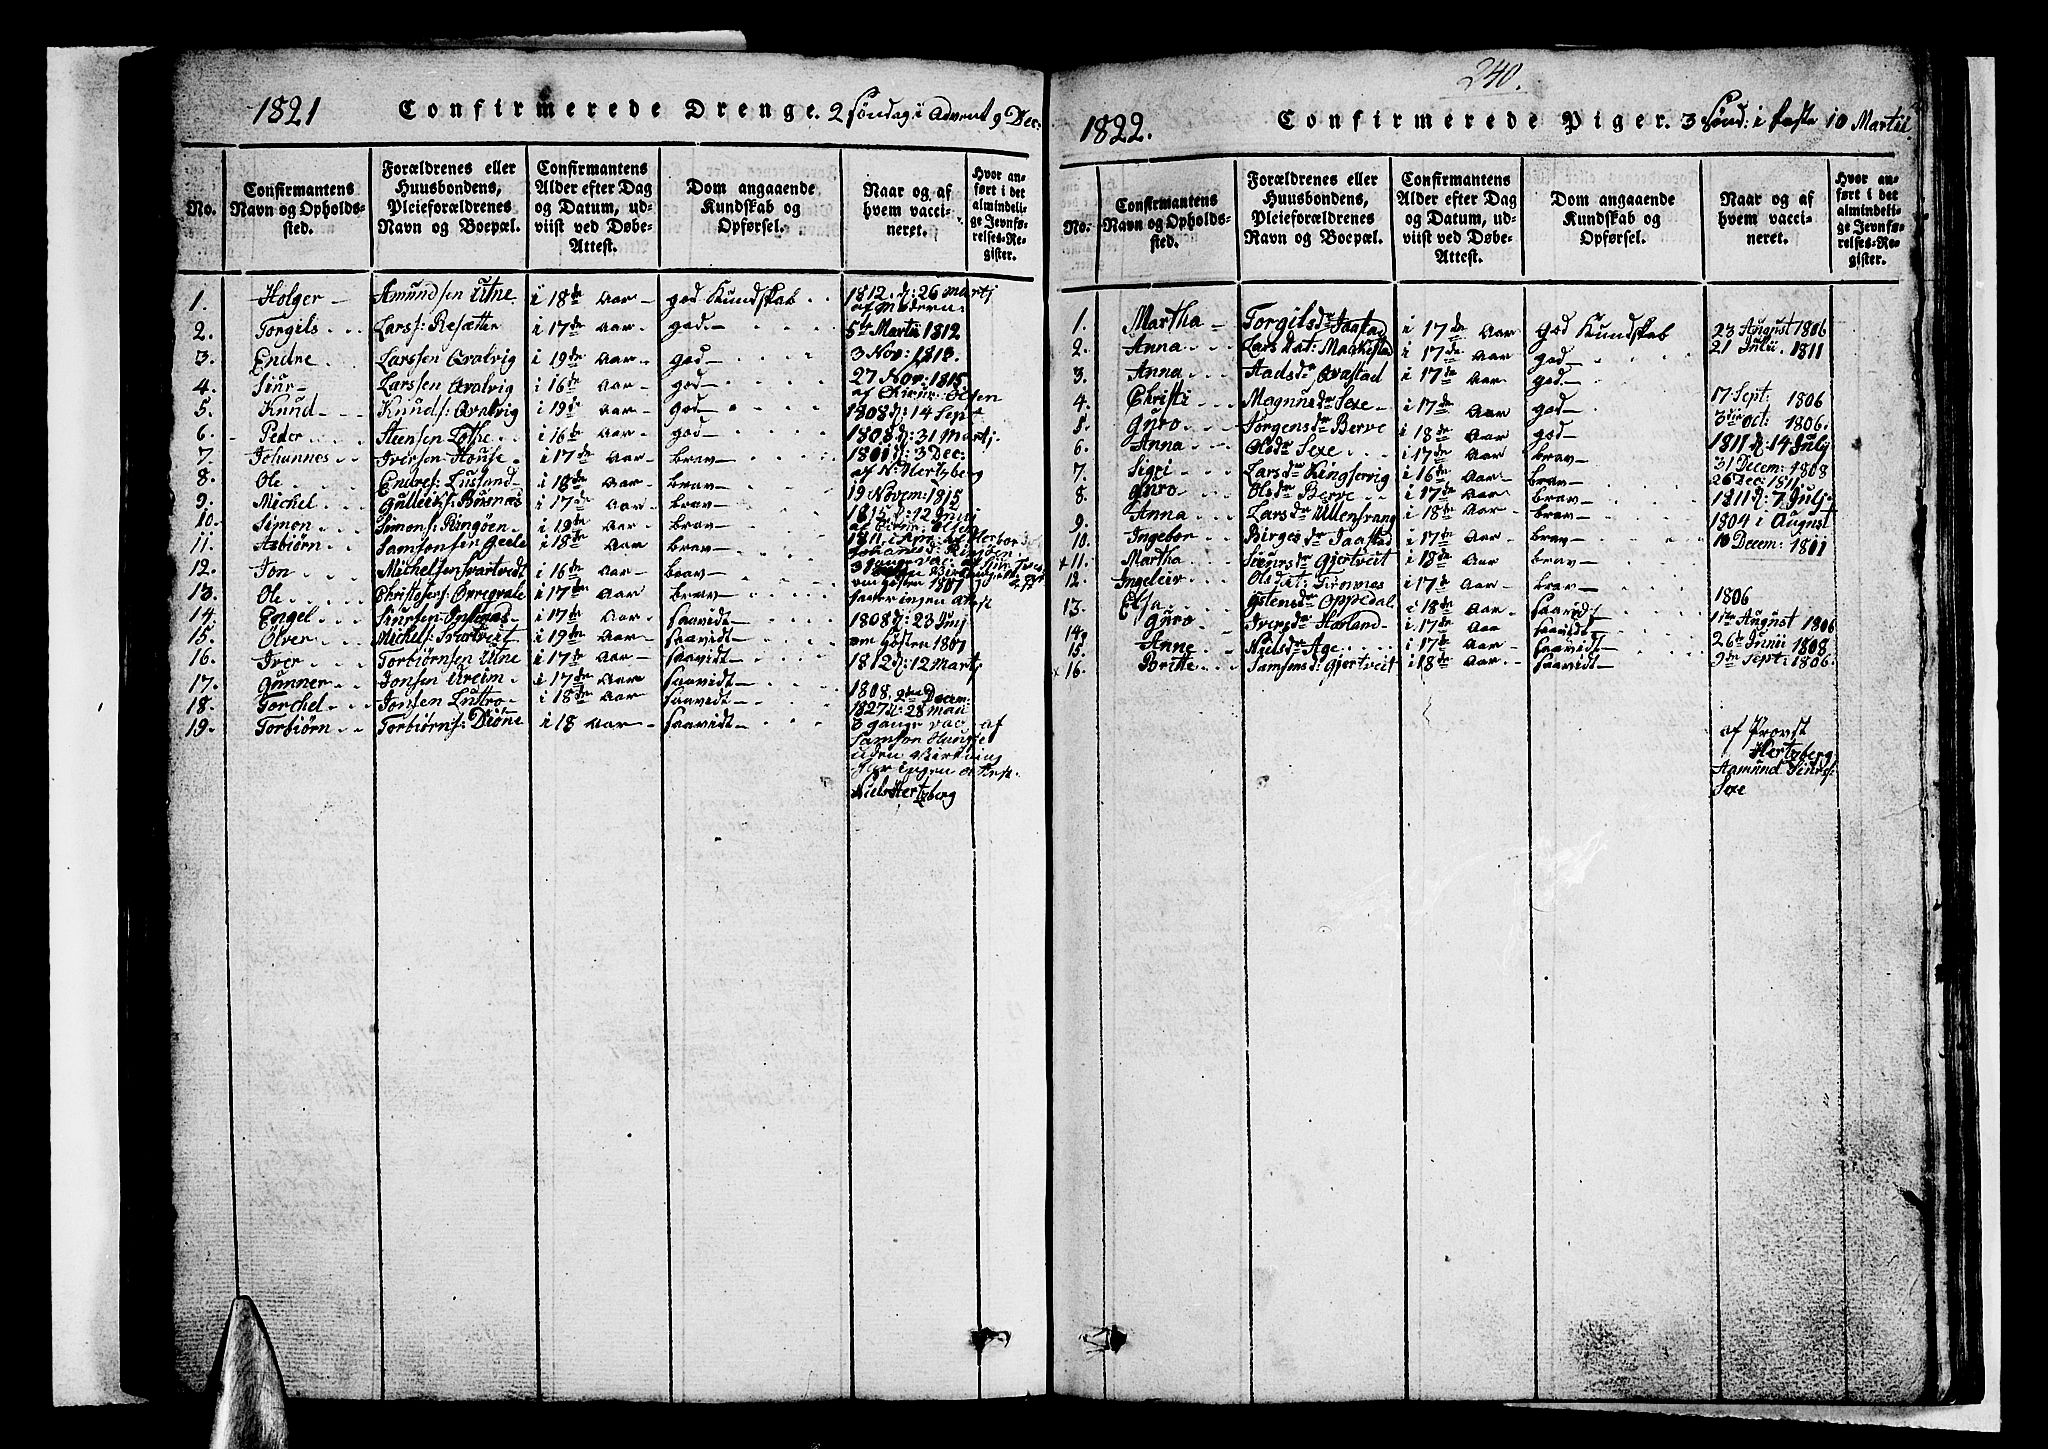 240.
1821 Confirmerede Drenge. 2 Søndag i Advent 9 Dec:
No.
Confirmantens Navn og Opholdssted.
Forældrenes eller Huusbondens, Pleieforældrenes Navn og Boepæl.
Confirmantens Alder efter Dag og Datum, udviist ved Døbe-Attest.
Dom angaaende Kundskab og Opførsel.
Naar og af hvem vaccineret.
Hvor anført i det almindelige Jevnførelses-Register.
1. Holger Amundsen Utne i 18de Aar god Kundskab 1812. d: 26 Martj af Moderen
2. Torgils Larss: Resæter i 17de Aar god 5te Martii 1812
3. Endre Larssen Qvalvig i 19de Aar god 3 Nov: 1813.
4. Siur Larssen Qvalvig i 16de Aar god 27 Nov: 1815 af Chirur: Olsen
5. Knud Knuds: Qvalvig i 19de Aar god 1808 d: 14 Sept
6. Peder Steensen Lothe i 16de Aar god 1808 d: 31 Martj
7. Johannes Iversen House i 17de Aar brav 1801 d: 3 Dec: af N: Hertzberg
8. Ole Endres: Lusand i 18de Aar brav
9. Michel Gulleiks: Buenæs i 17de Aar brav 19 Novem: 1815
10. Simon Simons: Ringøen i 19de Aar brav 1815 d: 12 Junj
11. Asbiørn Samsonsen Geele i 18de Aar brav
12. Jon Michelsen Svartvedt i 16de Aar brav
13. Ole Christophers: Øvregvale i 17de Aar brav
14. Engel Siursen i 17de Aar saavidt 1808 d: 23 Junj
15. Olver Michels: Svartveit i 19de Aar saavidt om Høsten 1801
16. Iver Torbiørnsen Utne i 17de Aar saavidt 1812 d: 12 Martj
17. Gunner Jonsen Ureim i 17de Aar saavidt
18. Torchel Jonsen Luttro i 18de Aar saavidt 1808. 9de Decem:
19. Torbiørn Torbiørns: Diöne i 18 Aar saavidt
3 gange vac: af
Samson
uden Virkning
har ingen Attest.
Niels Hertzberg
1822. Confirmerede Piger. 3 Sönd: i faste 10 Martii
No.
Confirmantens Navn og Opholdssted.
Forældrenes eller Huusbondens, Pleieforældrenes Navn og Boepæl.
Confirmantens Alder efter Dag og Datum, udviist ved Døbe-Attest.
Dom angaaende Kundskab og Opførsel.
Naar og af hvem vaccineret.
Hvor anført i det almindelige Jevnførelses-Register.
1. Martha Torgilsdr Jaastad i 17de Aar god Kundskab 23 August 1806
2. Anna Lars dat: Mackestad i 17de Aar god 21 Julii 1811
3. Anna Aadsdr Qvæstad i 17de Aar god
4. Christi Magnusdr Sexe i 17de Aar god 17 Sept: 1806
5. Guro Torgensdr Berve i 18de Aar god 3die Oct: 1806.
6. Anna Olsdr Sexe i 17de Aar brav 1811 d: 14 Julj
7. Sigri Larsdr Kingservig i 16de Aar brav 31 Decem: 1808
8. Guro Olsdr Berve i 17de Aar brav 26 Dec: 1811.
9. Anna Larsdr Ullensvang i 18de Aar brav 1811 d: 7 Julj
10. Ingebor Birgesdr Jaastad i 17de Aar brav 1804 i August
+11. Martha Siursdr Gjertveit i 18de Aar brav 10 Decem: 1801
12. Ingeleiv Ols dat: Tiønnes i 17de Aar brav
13. Elsa Østensdr Oppedal i 18de Aar saavidt 1806
14. Guro Iversdr Haaland i 17de Aar saavidt 11te August 1806
15. Anne Nielsdr Age i 17de Aar saavidt 26de Junii 1808
x16. Britte Samsonsdr Gjertveit i 18de Aar saavidt 9de Sept: 1806.
af Provst
Hertzberg
Aamund Siurs:
Sexe